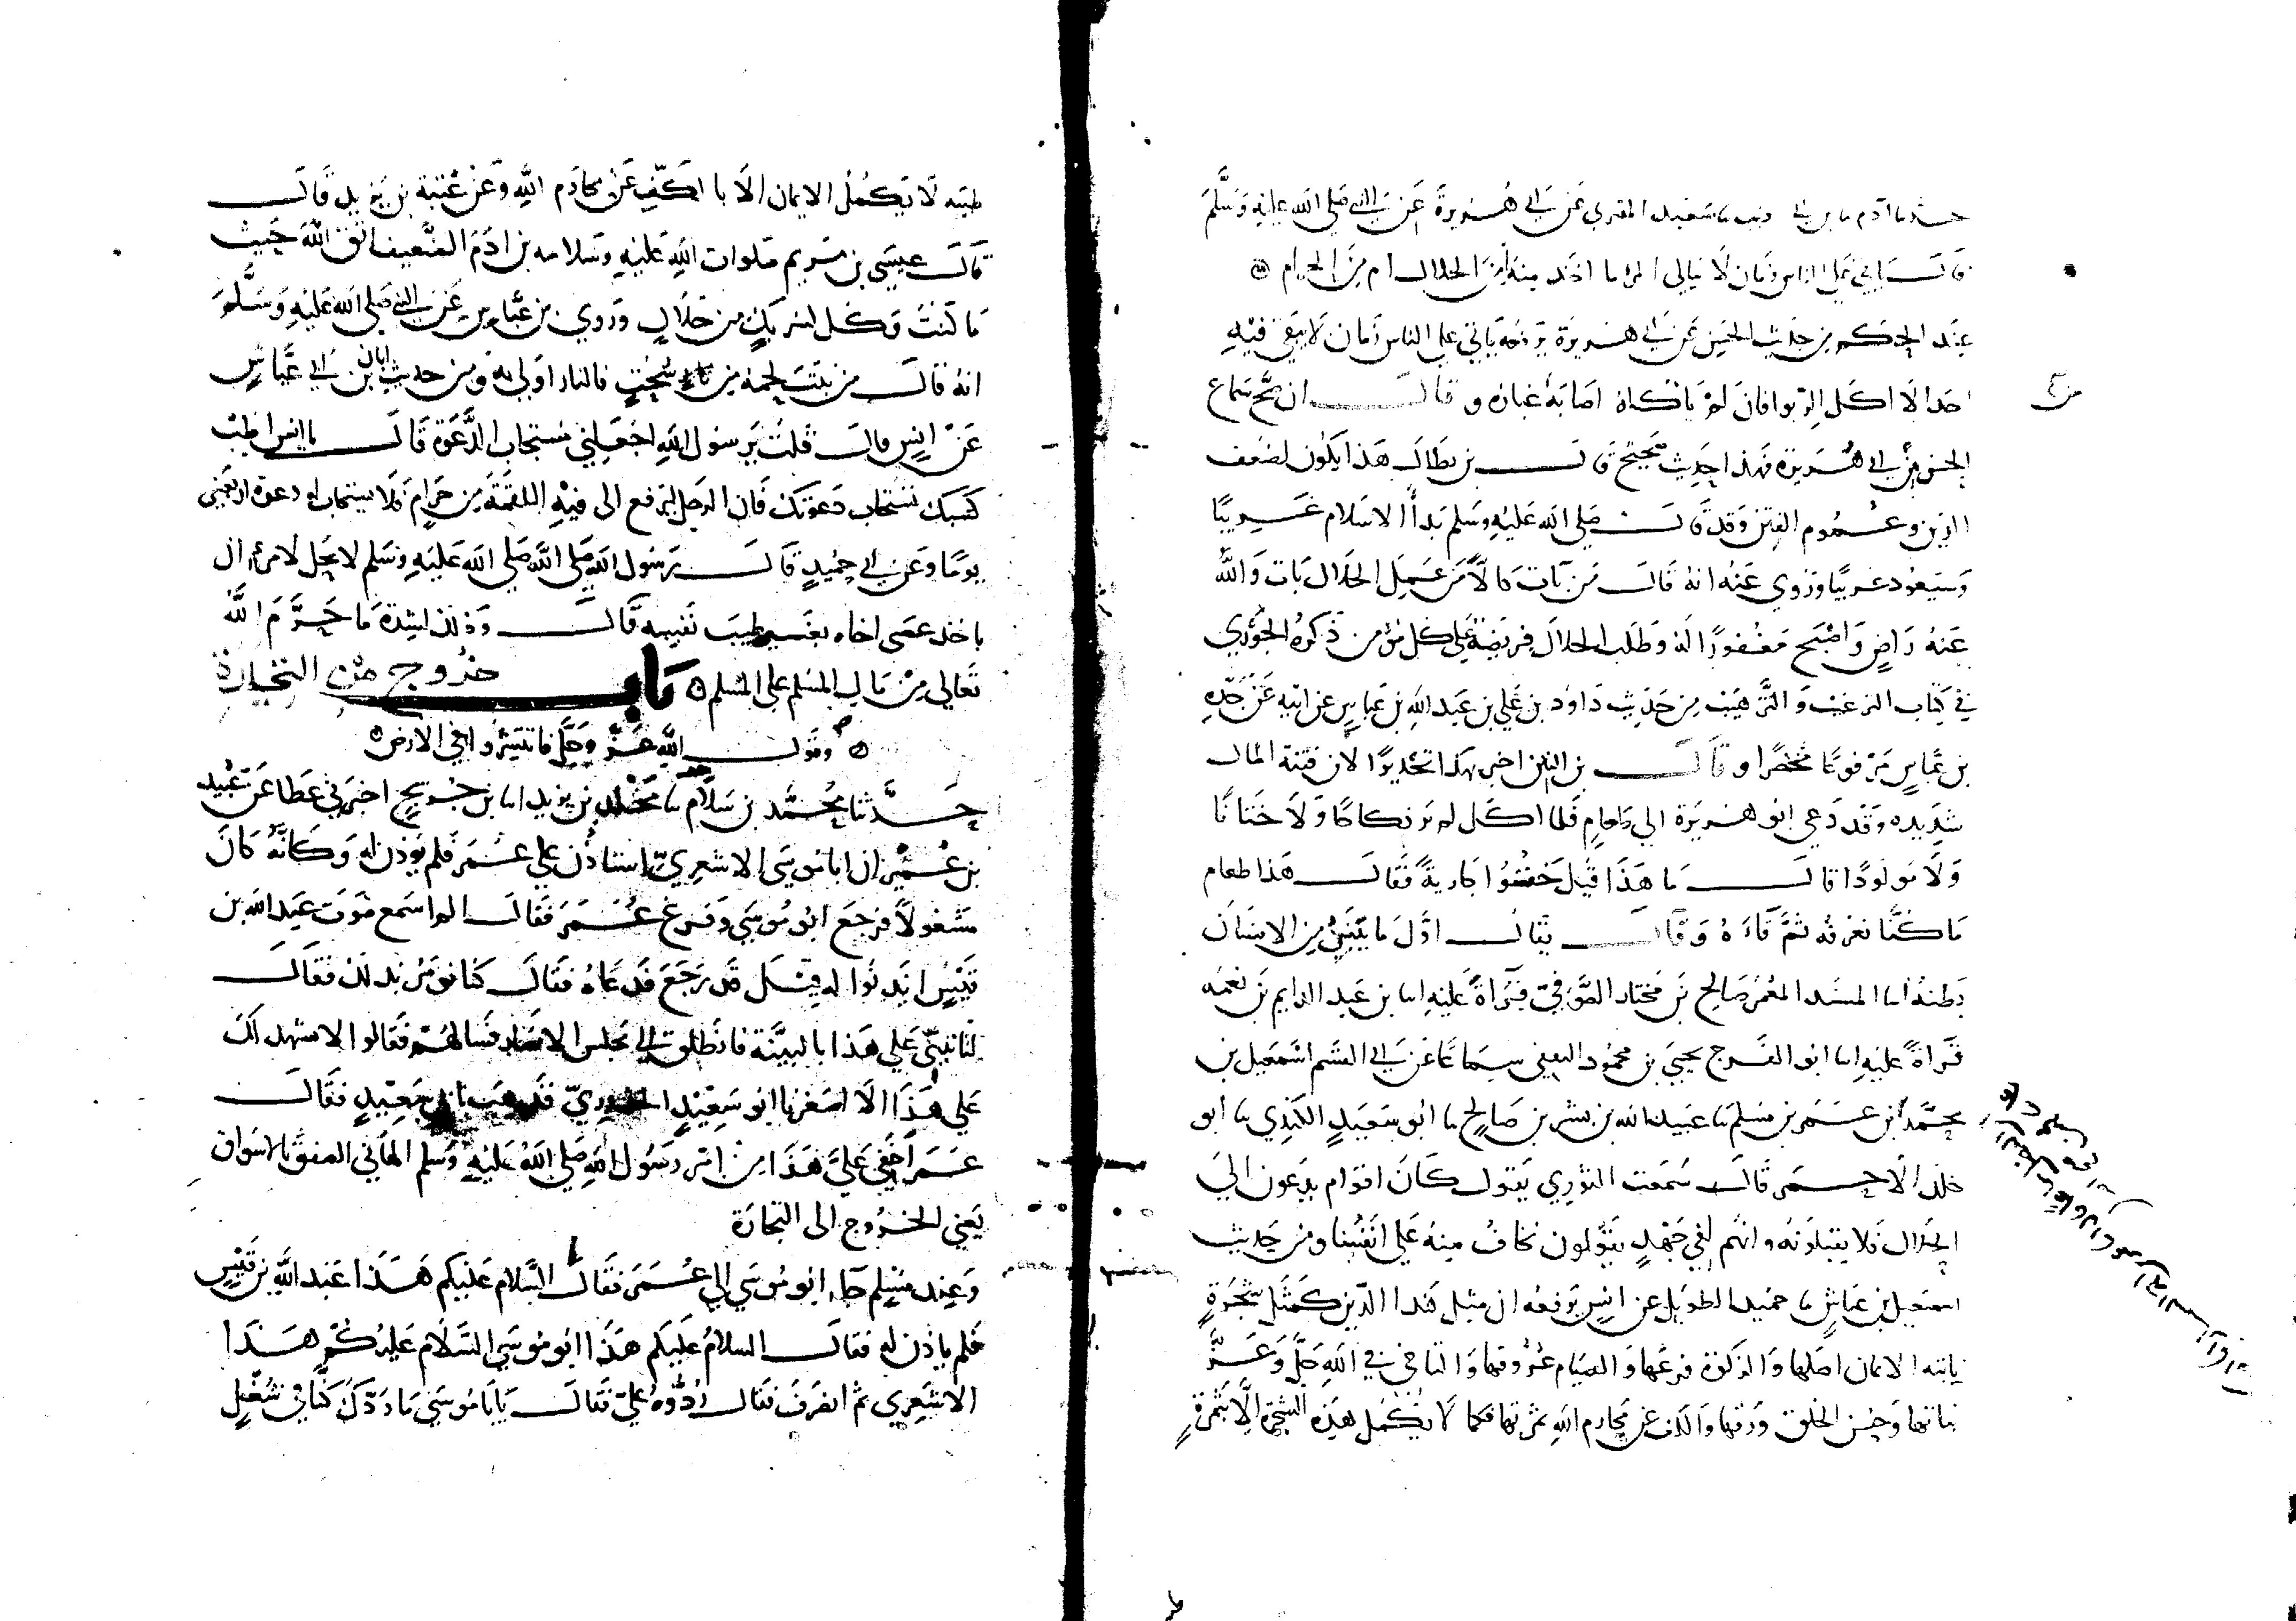 حدثنا ادم نا بن ابي ذيب نا سعيد المقبري عن ابي هريرة عن النبي صلى الله عليه وسلم
قال ياتي على الناس زمان لا يبالي المرء ما اخذ منه امن الحلال ام من الحرام
عند الحكم من حديث الحسن عن ابي هريرة يرفعه ياتي على الناس زمان لا يبقى فيه
احد الا اكل الربوا فان لم ياكله اصابه غباره وقال ان صح سماع
الحسن من ابي هريرة فهذا حديث صحيح قال بن بطال هذا يكون لضعف
الدين وعموم الفتن وقد قال صلى الله عليه وسلم بدأ الاسلام غريبا
وسيعود غريبا وروي عنه انه قال من بات كالا من عمل الحلال بات والله
عنه راض واصبح مغفورا له وطلب الحلال فريضة على كل مؤمن ذكره الجوزي
في كتاب الترغيب والترهيب من حديث داود بن علي بن عبد الله بن عباس عن ابيه عن جده
بن عباس مرفوعا مختصرا وقال بن التين اخبر بهذا تحذيرا لان فتنة المال
شديده وقد دعي ابو هريرة الى طعام فلما اكل لم ير نكاحا ولا ختانا
ولا مولودا قال ما هذا قيل خفضوا جارية فقال هذا طعام
ما كنا نعرفه ثم قاءه وقال يقال اول ما ينتن من الانسان
بطنه انا المسند المعمر صالح بن مختار قراة عليه انا بن عبد الدايم بن نعمه
قراة عليه انا ابو الفرج يحيى بن محمود سماعا عن ابي القسم اسمعيل بن
محمد ابن عمر بن مسلم نا عبيد الله بن بشر بن صالح نا ابو سعيد الكندي نا ابو
خلد الاحمر قال سمعت الثوري يقول كان اقوام يدعون الى
الحلال فلا يقبلونه وانهم لفي جهد يقولون نخاف منه على انفسنا ومن حديث
اسمعيل بن عياش نا حميد الطويل عن انس يرفعه ان مثل هذا الدين كمثل شجرة
نابته الايمان اصلها والزكوة فرعها والصيام عروقها والتاخي في الله جل وعز
نباتها وحسن الخلق ورقها والكف عن محارم الله ثمرتها فكما لا تكمل هذه الشجرة الا بثمرة
طيبه لا يكمل الايمان الا بالكف عن محارم الله وعن عتبة بن يزيد قال
قال عيسى بن مريم صلوات الله عليه وسلامه بن ادم الضعيف اتق الله حيث
ما كنت وكل كسرتك من حلال وروي بن عباس عن النبي صلى الله عليه وسلم
انه قال من نبت لحمه من سحت فالنار اولى به ومن حديث ابان بن ابي عياش
عن انس قال قلت يرسول الله اجعلني مستجاب الدعوة قال يا انس اطب
كسبك تستجاب دعوتك فان الرجل ليرفع الى فيه اللقمة من حرام فلا يستجاب له دعوة اربعين
يوما وعن ابي حميد قال رسول الله صلى الله صلى الله عليه وسلم لا يحل لامرء ان
ياخذ عصى اخاه بغير طيب نفسه قال وذلك لشدة ما حرم الله
تعالى من مال المسلم على المسلم باب خروج من التجارة
وقول الله عز وجل فانتشروا في الارض
حدثنا محمد بن سلام نا مخلد بن يزيد انا بن جريج اخبرني عطا عن عبيد
بن عمير ان ابا موسى الاشعري استاذن على عمر فلم يوذن له وكانه كان
مشغولا فرجع ابو موسى وفرغ عمر فقال الم اسمع صوت عبد الله بن
قيس ايذنوا له قيل قد رجع فدعاه فقال كنا نؤمر بذلك فقال
لتاتيني على هذا بالبينة فانطلق الى مجلس الانصار فسالهم فقالوا لا يشهد لك
على هذا الا اصغرنا ابو سعيد الخدري فذهب بابي سعيد فقال
عمر اخفي علي هذا من امر رسول الله صلى الله عليه وسلم الهاني الصفق بالاسواق
يعني الخروج الى التجارة
وعند مسلم جاء ابو موسى الى عمر فقال السلام عليكم هذا عبد الله بن قيس
فلم ياذن له فقال السلام عليكم هذا ابو موسى السلام عليكم هذا
الاشعري ثم انصرف فقال ردوه علي فقال يابا موسى ما ردك كنا في شغل